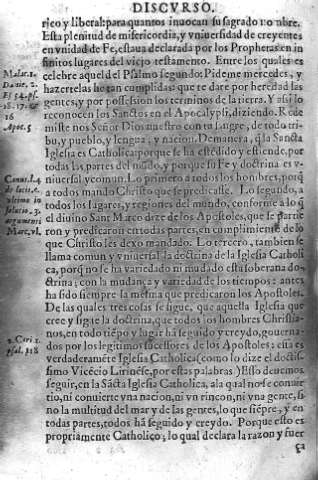 DISCVRSO.
rico y liberal: para quantos inuocan su sagrado nobre.
Esta plenitud de misericordia, y vniuersidad de creyentes
en vnidad de Fe, estaua declarada por los Prophetas en in
finitos lugares del viejo testamento. Entre los quales es
celebre aquel del Psalmo segundo: Pideme mercedes, y
hazertelas he tan cumplidas: que te dare por heredad las
gentes, y por possession los terminos de la tierra. Y assi lo
reconocen los Sanctos en el Apocalypsi, diziendo. Rede
miste nos Señor Dios nuestro con tu sangre, de todo tri
bu, y pueblo, y lengua, y nacion. Demanera, q̃ la Sancta
Iglesia es Catholica: porque se ha estẽdido y estiende, por
todas las partes del mũdo, y porque su Fe y doctrina es v-
niuersal y comun. Lo primero a todos los hombres, porq̃
a todos mando Christo que se predicasse. Lo segundo, a
todos los lugares, y regiones del mundo, conforme a lo q̃
el diuino Sant Marco dize de los Apostoles, que se partie
ron y predicaron en todas partes, en cumplimiẽto de lo
que Christo les dexo mandado. Lo tercero, tambien se
llama comun y vniuersal la doctrina de la Iglesia Catholi
ca, porq̃ no se ha variado ni mudado esta soberana do-
ctrina; con la mudança y variedad de los tiempos: antes
ha sido siempre la mesma que predicaron los Apostoles.
De las quales tres cosas se sigue, que aquella Iglesia que
cree y sigue la doctrina, que todos los hombres Christia-
nos, en todo tiẽpo y lugar hã seguido y creydo, gouerna-
dos por los legitimos sucessores de los Apostoles: esta es
verdaderamẽte Iglesia Catholica (como lo dize el doctis
simo Vicẽcio Lirinẽse, por estas palabras) Esso deuemos
seguir, en la Sãcta Iglesia Catholica, a la qual no se conuir
tio, ni conuierte vna nacion, ni vn rincon, ni vna gente, si
no la multitud del mar y de las gentes, lo que siẽpre, y en
todas partes, todos hã seguido y creydo. Porque esto es
propriamente Catholico; lo qual declara la razon y fuer
ça
Malac. 1.
Psal. 2.
Apoc. 5
Marc. vl.